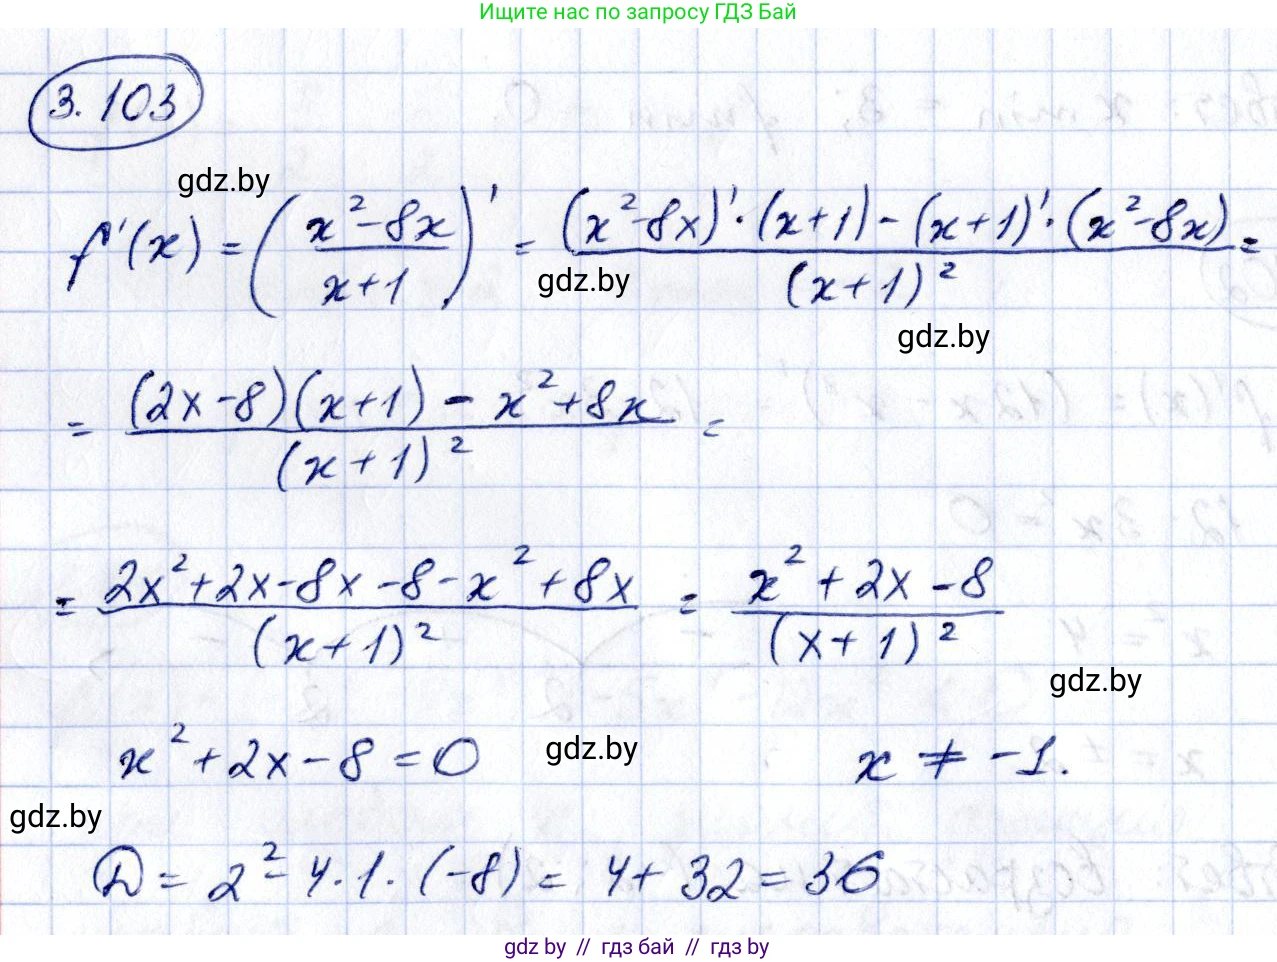 Ищите нас по запросу ГДЗ Бай
3.103
gdz.by
f'(x) = ((x²-8x)/(x+1))' = ((x²-8x)'·(x+1) - (x+1)'·(x²-8x))/(x+1)² =
gdz.by
gdz.by
= ((2x-8)(x+1) - x²+8x)/(x+1)² =
= (2x²+2x-8x-8-x²+8x)/(x+1)² = (x²+2x-8)/(x+1)²
gdz.by
x²+2x-8=0 gdz.by x ≠ -1.
gdz.by
D = 2²-4·1·(-8) = 4+32=36
gdz.by // гдз бай // гдз by